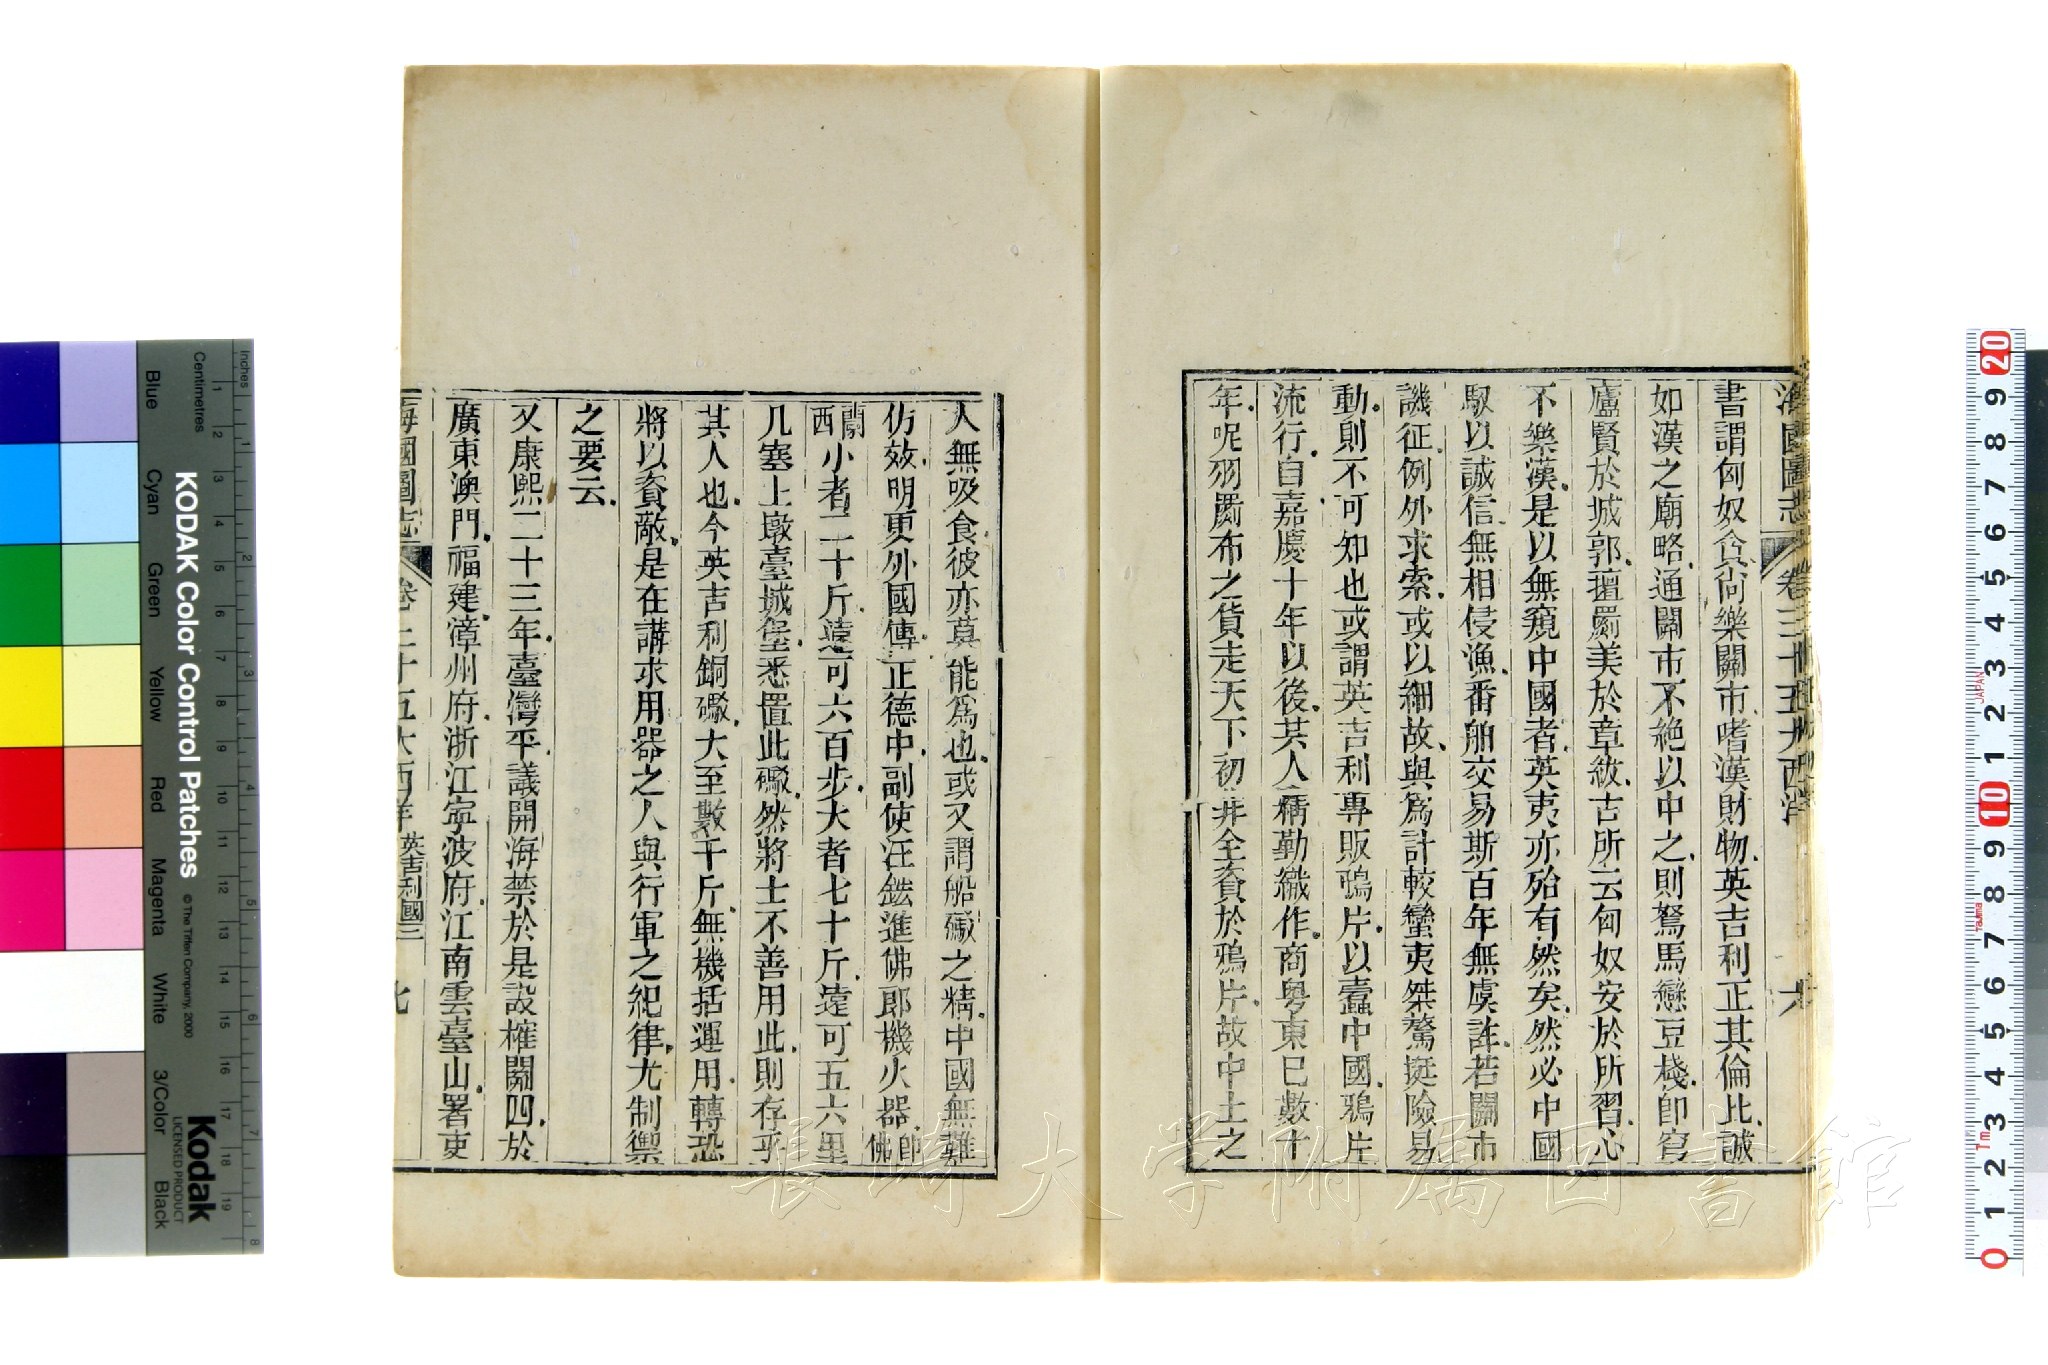 海國圖志 卷三十五 大西洋 六
書謂匈奴貪尚樂關市嗜漢財物英吉利正其倫比誠
如漢之廟略通關市不絕以中之則駑馬戀豆棧卽穹
廬賢於城郭氊罽美於章紱古所云匈奴安於所習心
不樂漢是以無窺中國者英夷亦殆有然矣然必中國
馭以誠信無相侵漁番舶交易斯百年無虞詐若關市
譏征例外求索或以細故與爲計較蠻夷桀驁挺險易
動則不可知也或謂英吉利專販鴉片以蠹中國鴉片
流行自嘉慶十年以後其人稱勤織作商粵東已數十
年呢羽罽布之貨走天下初非全資於鴉片故中土之
人無吸食彼亦莫能爲也或又謂船礮之精中國無難
仿效明更外國傳正德中副使汪鋐進佛郎機火器卽佛
蘭西小者二十斤遠可六百步大者七十斤遠可五六里
几塞上墩臺城堡悉置此礮然將士不善用此則存乎
其人也今英吉利銅礮大至數千斤無機括運用轉恐
將以資敵是在講求用器之人與行軍之紀律尤制禦
之要云
又康熙二十三年臺灣平議開海禁於是設榷關四於
廣東澳門福建漳州府浙江寧波府江南雲臺山署吏
海國圖志 卷三十五 大西洋 英吉利國三 七
長崎大学附属図書館
KODAK Color Control Patches
© The Tiffen Company, 2000
Kodak
LICENSED PRODUCT
Inches
Centimetres
Blue
Cyan
Green
Yellow
Red
Magenta
White
3/Color
Black
JAPAN